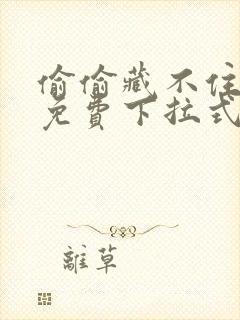 偷偷藏不住
免費下拉式
離草